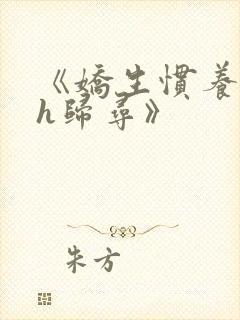 《嬌生慣養
h歸尋》
朱方